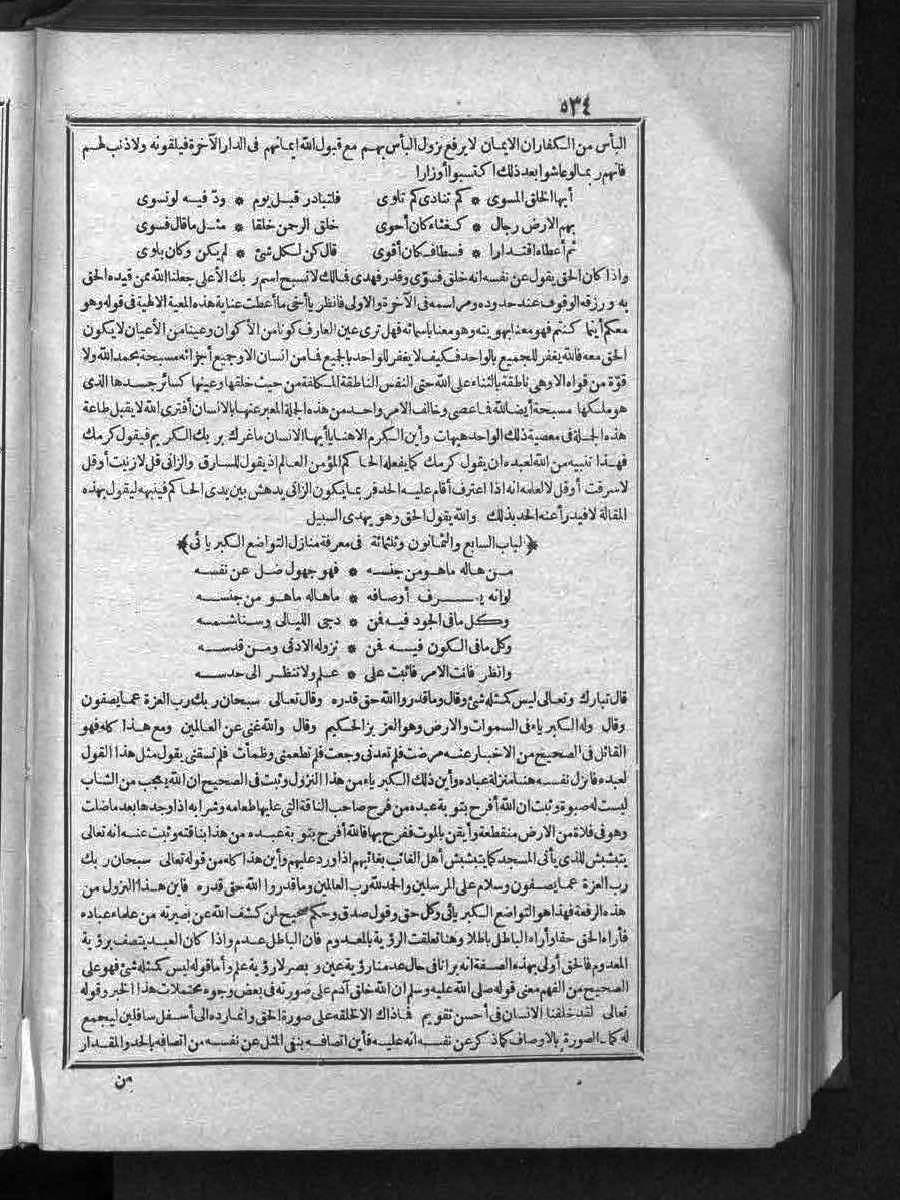 ٥٣٤
البأس من الكفار ان الايمان لا يرفع نزول البأس بهم مع قبول الله ايمانهم فى الدار الآخرة فيلقونه ولا ذنب لهم
فانهم ربما لو عاشوا بعد ذلك اكتسبوا أوزارا
أيها الخلق المسوى * كم تنادى كم تاوى فلتبادر قبل يوم * ودّ فيه لو تسوى
بهم الارض رجال * كغثاء كان أحوى خلق الرحمن خلقا * مثل ما قال فسوى
ثم أعطاه اقتدارا * فسطا فكان أقوى قال كن لكل شئ * لم يكن وكان باوى
واذا كان الحق يقول عن نفسه انه خلق فسوّى وقدر فهدى فمالك لا تسبح اسم ربك الأعلى جعلنا الله ممن قيده الحق
به ورزقه الوقوف عند حدوده ومراسمه فى الآخرة والاولى فانظر يا أخى ما أعطت عناية هذه المعية الالهية فى قوله وهو
معكم أينما كنتم فهو معنا بهويته وهو معنا باسمائه فهل ترى عين العارف كونا من الأكوان وعينا من الأعيان لا يكون
الحق معه فالله يغفر للجميع بالواحد فكيف لا يغفر للواحد بالجميع فما من انسان الا وجميع أجزائه مسبحة بحمد الله ولا
قوّة من قواه الا وهى ناطقة بالثناء على الله حتى النفس الناطقة المكلفة من حيث خلقها وعينها كسائر جسدها الذى
هو ملكها مسبحة أيضا لله فما عصى وخالف الامر واحد من هذه الجملة المعبر عنها بالانسان أفترى الله لا يقبل طاعة
هذه الجملة فى معصية ذلك الواحد هيهات وأين الكرم الا هنا يا أيها الانسان ما غرك بربك الكريم فيقول كرمك
فهذا تنبيه من الله لعبده ان يقول كرمك كما يفعله الحاكم المؤمن العالم اذ يقول للسارق والزانى قل لا زنيت أو قل
لا سرقت أو قل لا لعلمه انه اذا اعترف أقام عليه الحد فربما يكون الزانى يدهش بين يدى الحاكم فينبهه ليقول بهذه
المقالة لا فيدرأ عنه الحد بذلك والله يقول الحق وهو يهدى السبيل
﴿الباب السابع والثمانون وثلثمائة فى معرفة منازل التواضع الكبريائى﴾
من هاله ما هو من جنسه * فهو جهول ضل عن نفسه
لو انه يعرف أوصافه * ما هاله ما هو من جنسه
وكل ما فى الجود فيه فمن * دجى الليالى وسنا شمسه
وكل ما فى الكون فيه فمن * نزوله الادنى ومن قدسه
وانظر فانت الامر فاثبت على * علم ولا تنظر الى حدسه
قال تبارك وتعالى ليس كمثله شئ وقال وما قدروا الله حق قدره وقال تعالى سبحان ربك رب العزة عما يصفون
وقال وله الكبرياء فى السموات والارض وهو العزيز الحكيم وقال والله غنى عن العالمين ومع هذا كله فهو
القائل فى الصحيح من الاخبار عنه مرضت فلم تعدنى وجعت فلم تطعمنى وظمأت فلم تسقنى يقول مثل هذا القول
لعبده فانزل نفسه هنا منزلة عباده وأين ذلك الكبرياء من هذا النزول وثبت فى الصحيح ان الله يعجب من الشاب
ليست له صبوة وثبت ان الله أفرح بتوبة عبده من فرح صاحب الناقة التى عليها طعامه وشرابه اذا وجدها بعد ما ضلت
وهو فى فلاة من الارض منقطعة وأيقن بالموت ففرح بها فالله أفرح بتوبة عبده من هذا بناقته وثبت عنه انه تعالى
يتبشبش للذى يأتى المسجد كما يتبشبش أهل الغائب بغائبهم اذا ورد عليهم وأين هذا كله من قوله تعالى سبحان ربك
رب العزة عما يصفون وسلام على المرسلين والحمد لله رب العالمين وما قدروا الله حق قدره فاين هذا النزول من
هذه الرفعة فهذا هو التواضع الكبريائى وكل حق وقول صدق وحكم صحيح لمن كشف الله عن بصيرته من علماء عباده
فأراه الحق حقا وأراه الباطل باطلا وهنا تعلقت الرؤية بالمعدوم فان الباطل عدم واذا كان العبد يتصف برؤية
المعدوم فالحق أولى بهذه الصفة انه يرانا فى حال عدمنا رؤية عين وبصر لا رؤية علم وأما قوله ليس كمثله شئ فهو على
الصحيح من الفهم معنى قوله صلى الله عليه وسلم ان الله خلق آدم على صورته فى بعض وجوه محتملات هذا الخبر وقوله
تعالى لقد خلقنا الانسان فى أحسن تقويم فما ذاك الا خلقه على صورة الحق وانما رده الى أسفل سافلين ليجمع
له كمال الصورة بالاوصاف كما ذكر عن نفسه انه عليه فأين اتصافه بنفى المثل عن نفسه من اتصافه بالحد والمقدار
من